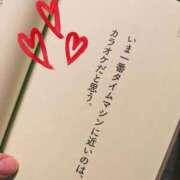 いま一番タイムマシンに近いのは、
カラオケだと思う。